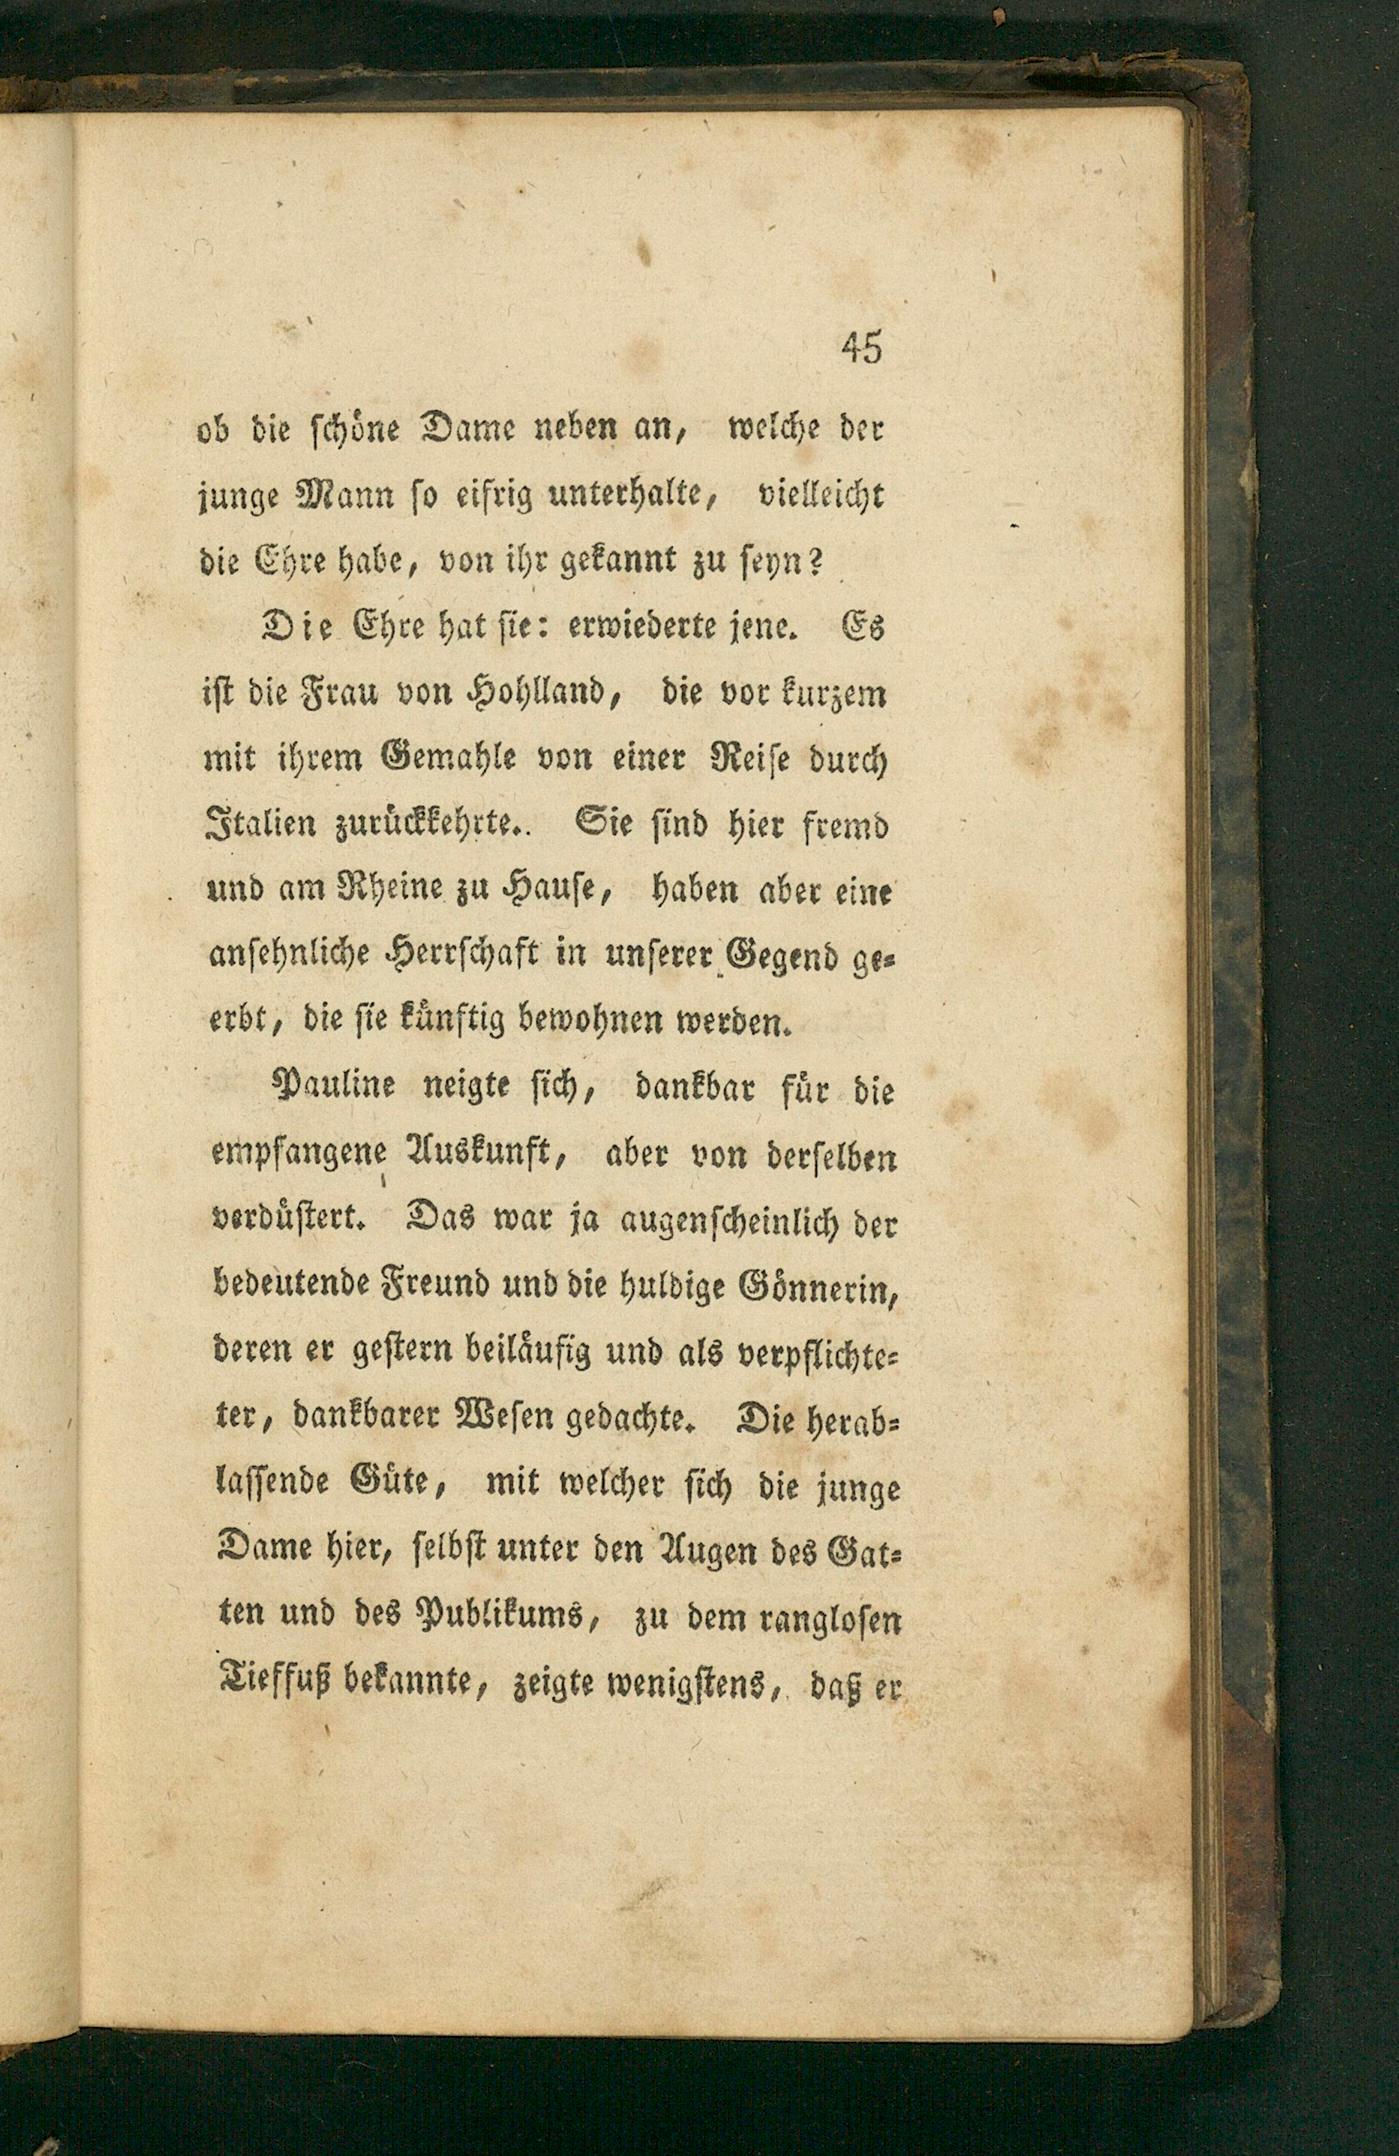 45
ob die ſchöne Dame neben an, welche der
junge Mann ſo eifrig unterhalte, vielleicht
die Ehre habe, von ihr gekannt zu ſeyn?
Die Ehre hat ſie: erwiederte jene. Es
iſt die Frau von Hohlland, die vor kurzem
mit ihrem Gemahle von einer Reiſe durch
Italien zurückkehrte. Sie ſind hier fremd
und am Rheine zu Hauſe, haben aber eine
anſehnliche Herrſchaft in unſerer Gegend ge⸗
erbt, die ſie künftig bewohnen werden.
Pauline neigte ſich, dankbar für die
empfangene Auskunft, aber von derſelben
verdüſtert. Das war ja augenſcheinlich der
bedeutende Freund und die huldige Gönnerin,
deren er geſtern beiläufig und als verpflichte⸗
ter, dankbarer Weſen gedachte. Die herab⸗
laſſende Güte, mit welcher ſich die junge
Dame hier, ſelbſt unter den Augen des Gat⸗
ten und des Publikums, zu dem rangloſen
Tieffuß bekannte, zeigte wenigſtens, daß er